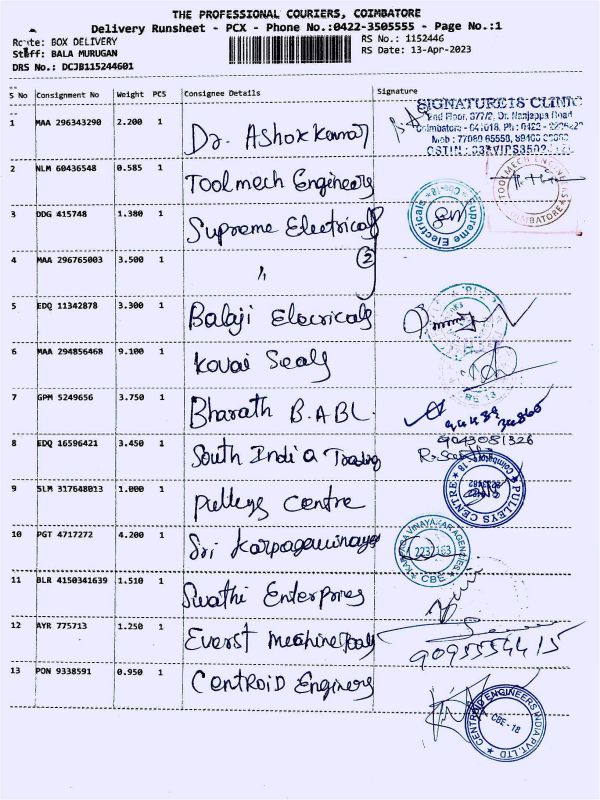 THE PROFESSIONAL COURIERS, COIMBATORE
Delivery Runsheet - PCX - Phone No.:0422-3505555 - Page No.:1
Route: BOX DELIVERY
RS No.: 1152446
Staff: BALA MURUGAN
RS Date: 13-Apr-2023
DRS No.: DCJB115244601
S No Consignment No Weight PCS Consignee Details Signature
1 MAA 296343290 2.200 1 Dr. Ashok Kumar
SIGNATURE18 CLINIC
2nd Floor, 377/2, Dr. Nanjappa Road
Coimbatore - 641018, Ph: 0422 -
Mob : 77080 65558,
GSTIN :
2 NLM 60436548 0.585 1 Toolmech Engineers
TOOLMECH ENGINEERS
COIMBATORE
3 DDG 415748 1.380 1 Supreme Electricals
Supreme Electricals
4 MAA 296765003 3.500 1 " 2
5 EDQ 11342878 3.300 1 Balaji Elecricals
6 MAA 294856468 9.100 1 Kovai Seals
7 GPM 5249656 3.750 1 Bharath B.ABL.
8 EDQ 16596421 3.450 1 South India Trading
9043081326
9 SLM 317648013 1.000 1 Pulleys Centre
PULLEYS CENTRE
Coimbatore-18
10 PGT 4717272 4.200 1 Sri Karpagavinayga
KARPAGA VINAYAKAR AGENCIES
2232163
CBE
11 BLR 4150341639 1.510 1 Swathi Enterprises
12 AYR 775713 1.250 1 Everst Machine Tools
9095554415
13 PON 9338591 0.950 1 Centroid Engineers
CENTROID ENGINEERS INDIA PVT. LTD
CBE - 18